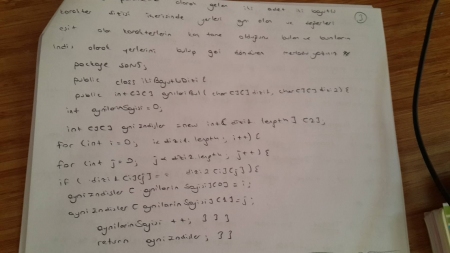 olarak gelen iki adet iki boyutlu
karakter dizisi içerisinde yerleri aynı olan ve değerleri
eşit olan karakterlerin kaç tane olduğunu bulan ve bunların
indis olarak yerlerini bulup geri döndüren metodu yazınız
3
package soru5;
public class ikiBoyutluDizi {
public int[][] aynileriBul( char[][] dizi1, char[][] dizi2) {
int aynilarinSayisi = 0;
int [][] ayniIndisler = new int[ dizi1. length ] [2];
for (int i = 0; i < dizi1. length; i++) {
for (int j = 0; j < dizi2. length; j++) {
if ( dizi1 [i][j] == dizi2 [i][j] ) {
ayniIndisler [ aynilarinSayisi ][0] = i;
ayniIndisler [ aynilarinSayisi ][1] = j;
aynilarinSayisi ++; } } }
return ayniIndisler; } }